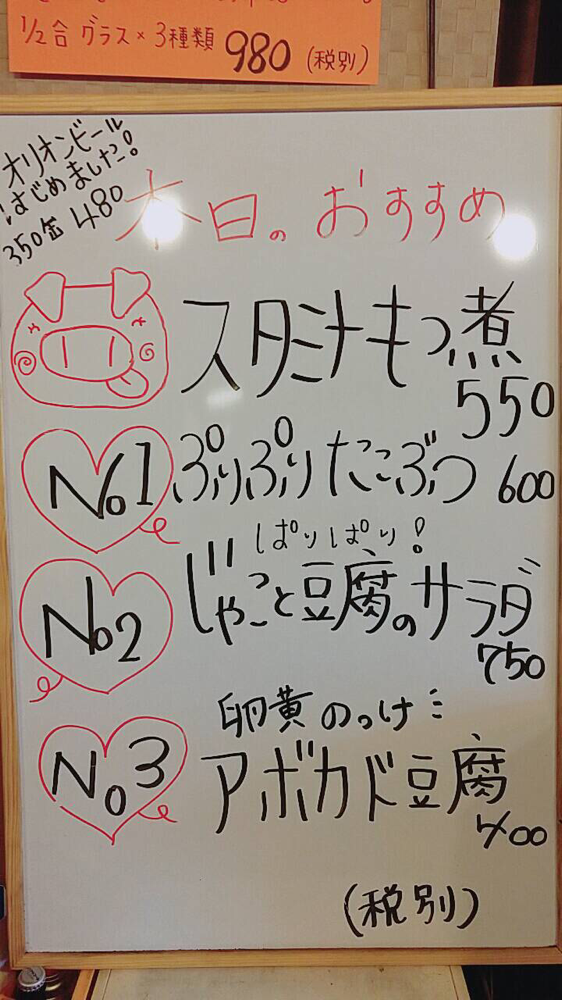 1/2合 グラス×3種類 980 (税別)
オリオンビール
はじめました!
350缶 480
本日のおすすめ
スタミナもつ煮
550
No1 ぷりぷりたこぶつ 600
ぱりぱり!
No2 じゃこと豆腐のサラダ
750
卵黄のっけ
No3 アボカド豆腐
400
(税別)